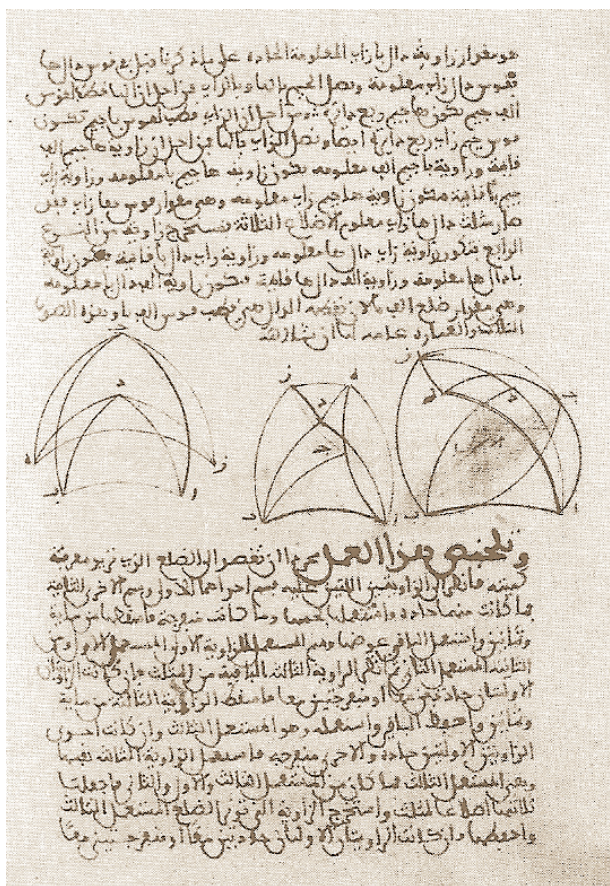 هو مقدار زاوية دال با زاي المعلومة الحادة على ما ذكرنا قبل في قوس دال ها
فقوس دال زاي معلومة ونصل الجيم بالها وبالزاي فمن اجل ان الها قطب لقوس
الف جيم تكون ها جيم ربع دايرة ومن اجل ان الزاي قطب لقوس با جيم تكون
قوس جيم زاي ربع دايرة ايضا ونصل الزاي بالها فمن اجل ان زاوية ها جيم الف
قايمة وزاوية با جيم الف معلومة تكون زاوية ها جيم با معلومة وزاوية زاي
جيم با قايمة فتكون زاوية ها جيم زاي معلومة وهي مقدار قوس ها زاي فقد
صار مثلث دال ها زاي معلوم الاضلاع الثلاثة فنستخرج زاوية من النوع
الرابع فتكون زاوية زاي دال ها معلومة وزاوية زاي دال با قايمة فتكون زاوية
با دال ها معلومة وزاوية الف دال ها قايمة فتكون زاوية الف دال با معلومة
وهي مقدار ضلع الف با لان نقطة الدال هي قطب قوس الف با وهذه الصور
الثلاث والعبارة عامة لها ان شا الله
وتلخيص هذا العمل ان تقصد الى الضلع الذي تريد معرفة
كميته فانظر الى الزاويتين اللتين عليه فسم احداهما الاولى وسم الاخرى الثانية
فما كانت منهما حادة فاستعملها بحسبها وما كانت منفرجة فاسقطها من ماية
وثمانين واستعمل الباقي عوضها وسم المستعمل للزاوية الاولى المستعمل الاول ومن
الثانية المستعمل الثاني ثم انظر الزاوية الثالثة الباقية من المثلث فان كانت الزاويتان
الاوليان حادتين معا او منفرجتين معا فاسقط الزاوية الثالثة من ماية
وثمانين واحفظ الباقي واستعمله وهو المستعمل الثالث وان كانت احدى
الزاويتين الاوليتين حادة والاخرى منفرجة فاستعمل الزاوية الثالثة نفسها
وهي المستعمل الثالث فما كان من المستعمل الثالث والاول والثاني فاجعلها
ثلاثتها اضلاعا لمثلث واستخرج الزاوية التي يوترها الضلع المستعمل الثالث
واحفظها فان كانت الزاويتان الاوليان حادتين معا او منفرجتين معا